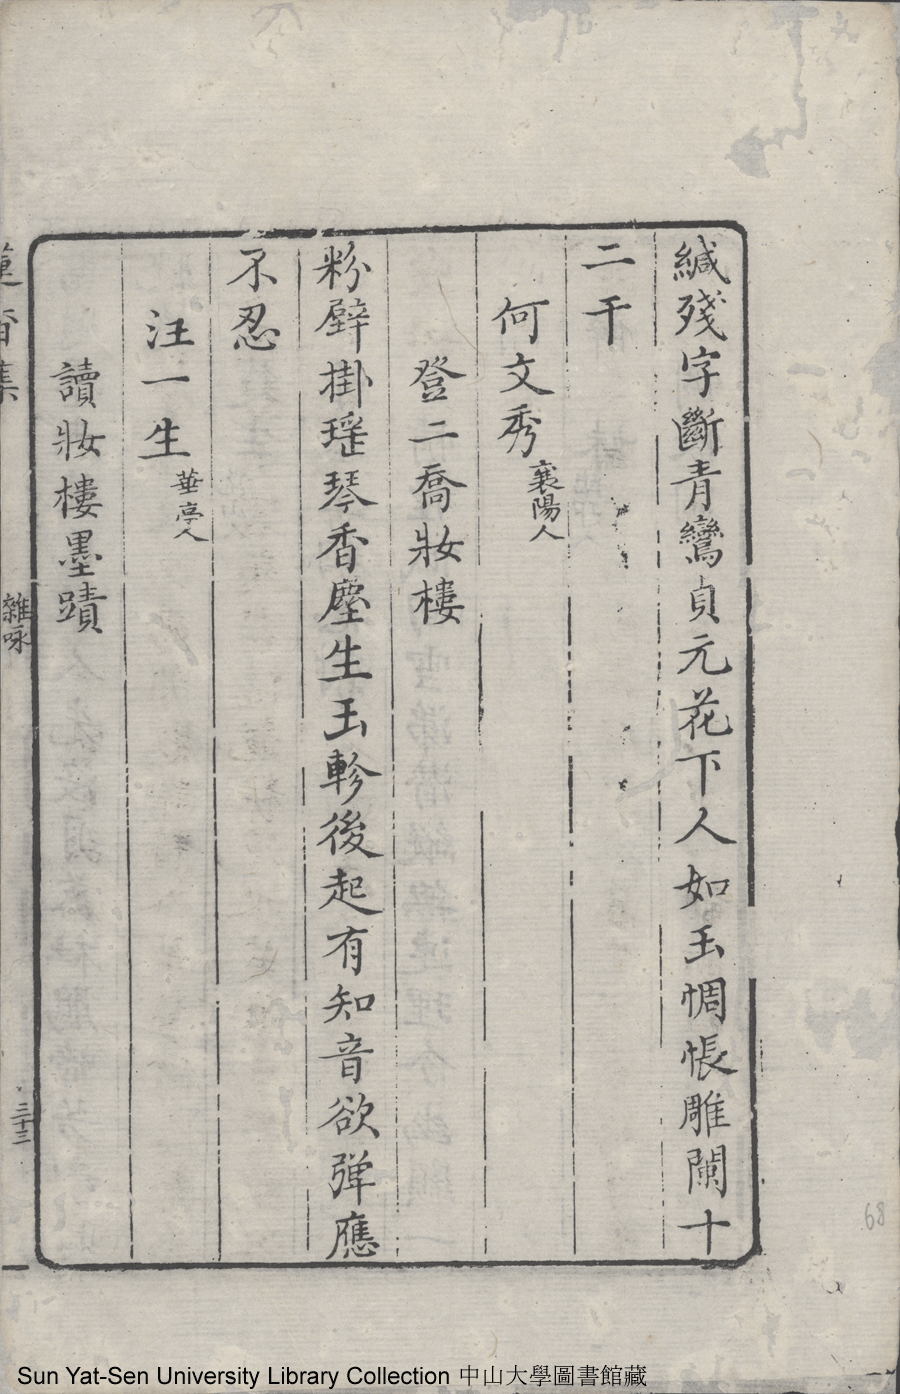 緘殘字斷青鸞貞元花下人如玉惆悵雕闌十
二干
何文秀 襄陽人
登二喬妝樓
粉壁掛瑤琴香塵生玉軫後起有知音欲弹應
不忍
汪一生 華亭人
讀妝樓墨蹟
蓮香集
雜咏
三十三
68
Sun Yat-Sen University Library Collection 中山大學圖書館藏